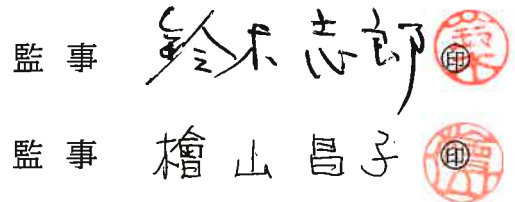 監事 鈴木志郎 ㊞
監事 檜山昌子 ㊞